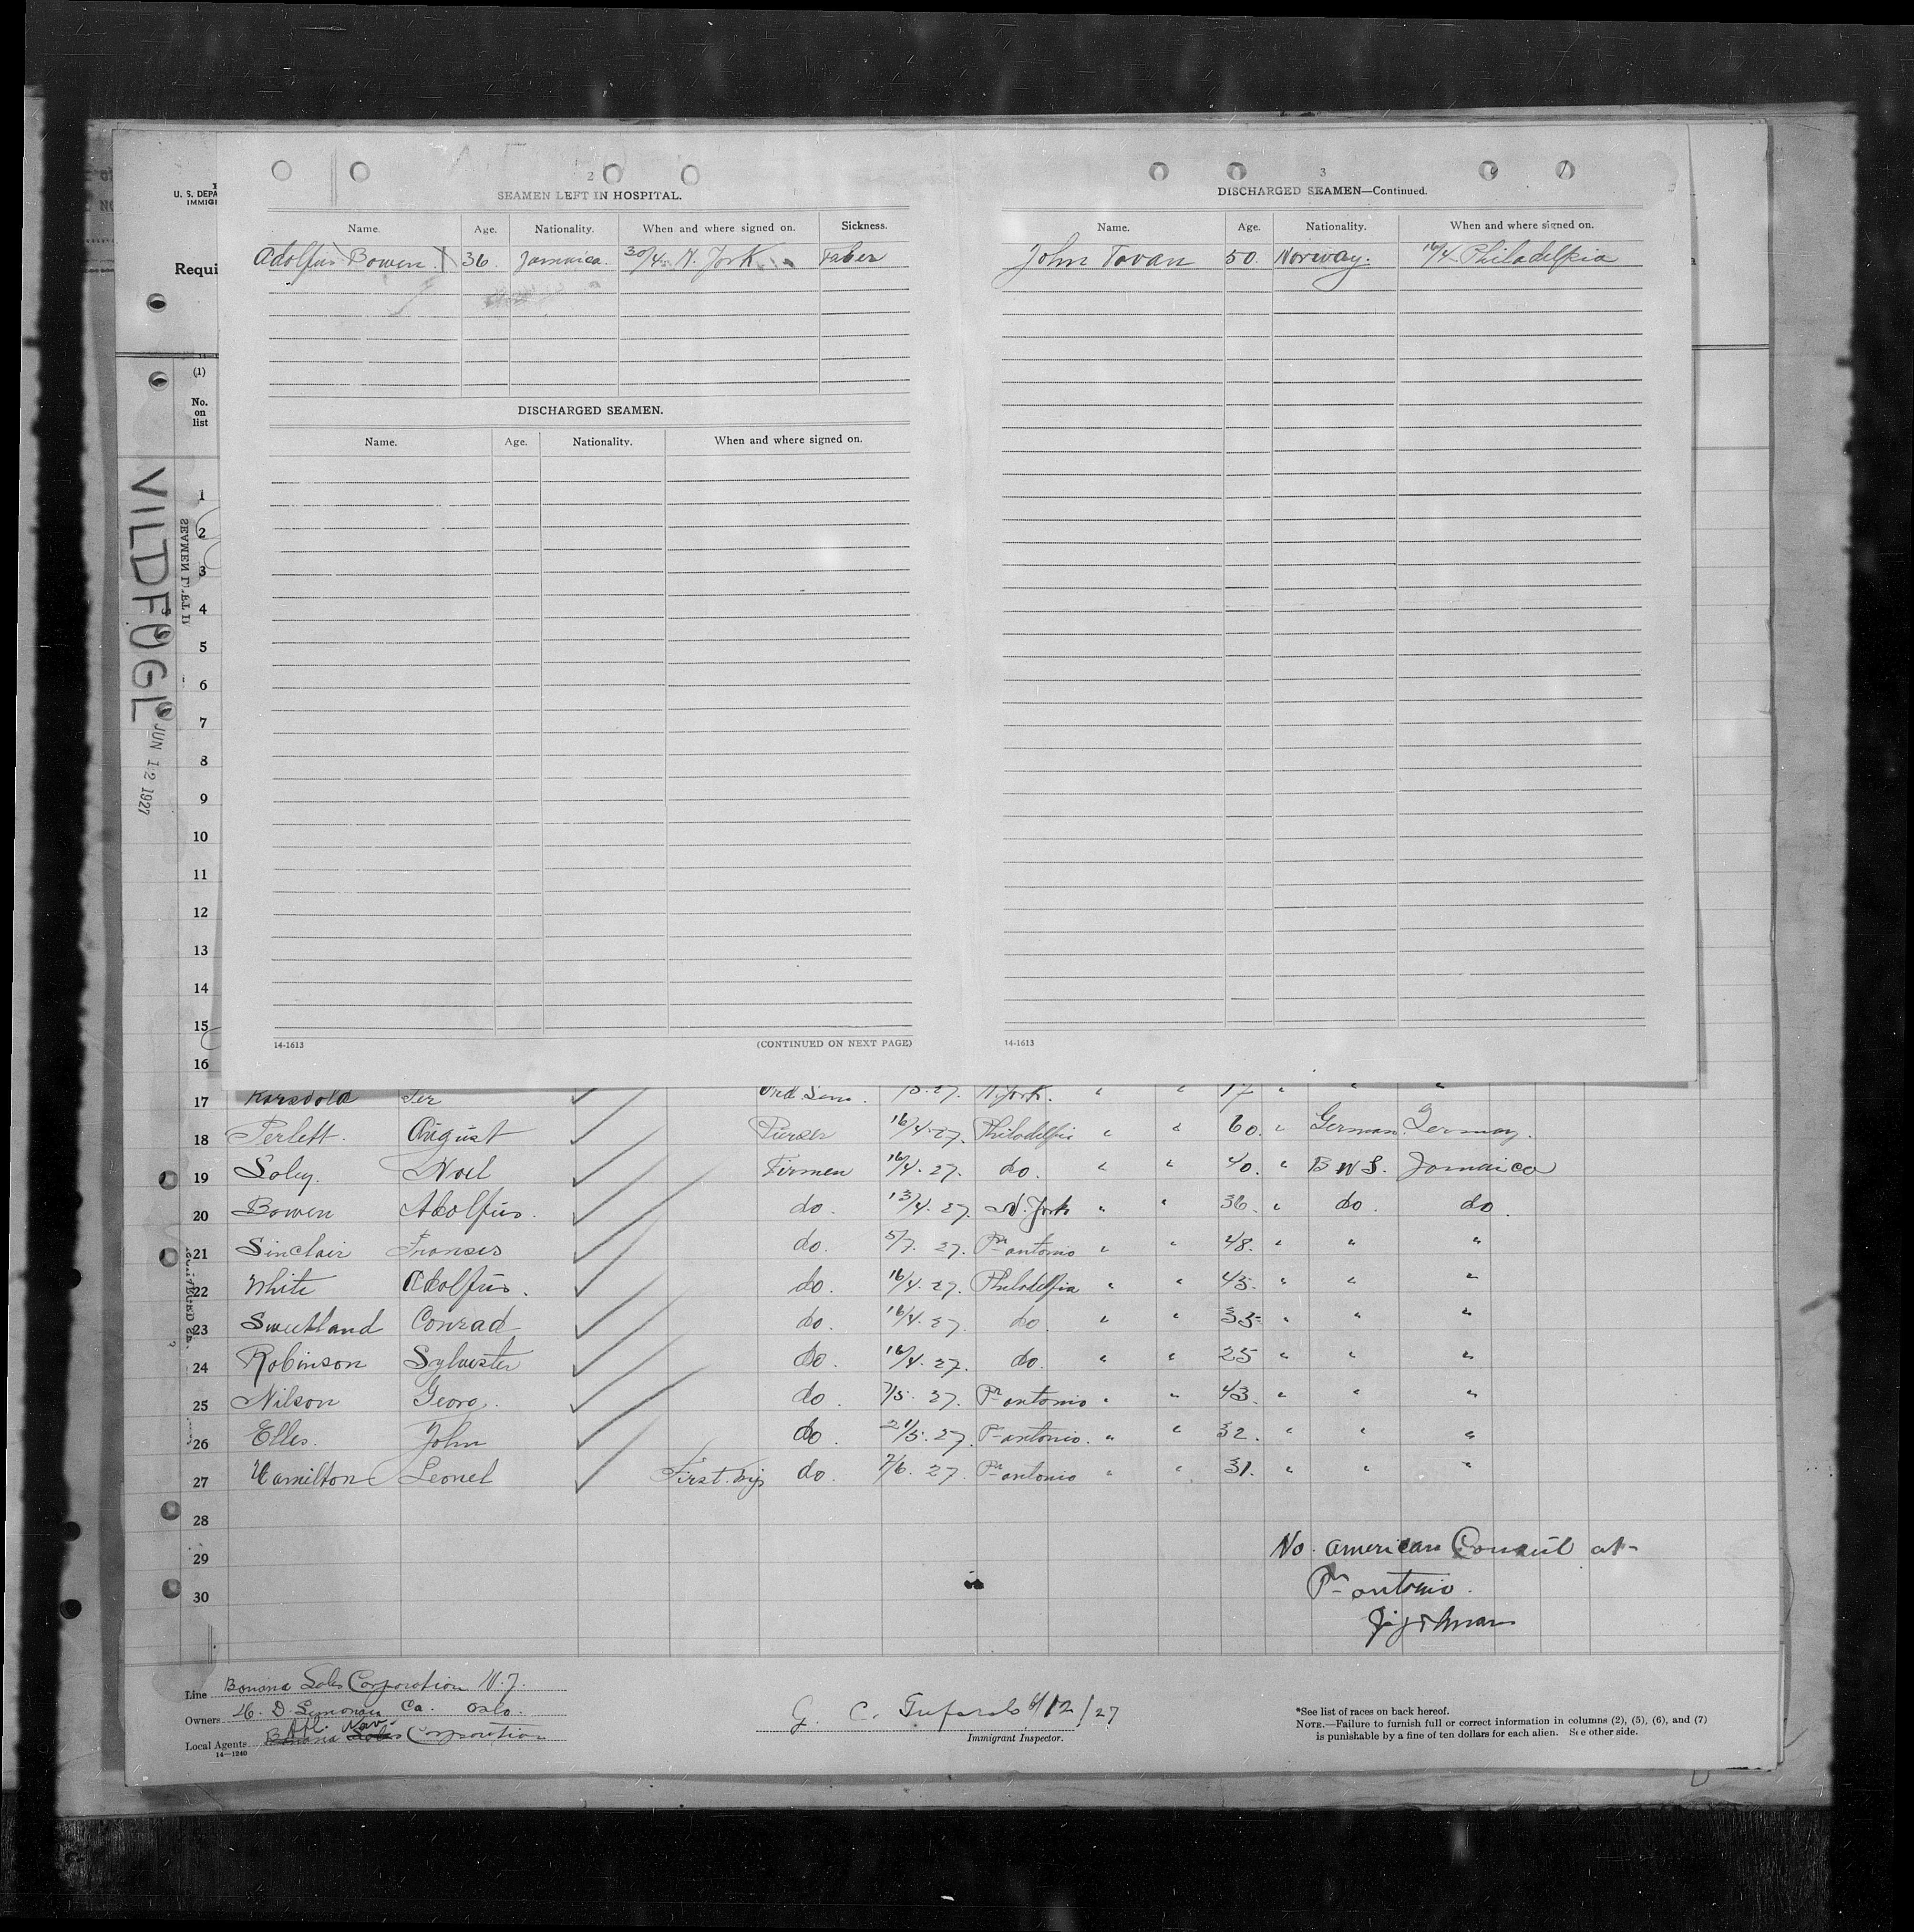 2
SEAMEN LEFT IN HOSPITAL.
Name. Age. Nationality. When and where signed on. Sickness.
Adolfus Bowen. 36. Jamaica. 30/4. N. York
DISCHARGED SEAMEN.
Name. Age. Nationality. When and where signed on.
14-1613 (CONTINUED ON NEXT PAGE)
3
DISCHARGED SEAMEN—Continued.
Name. Age. Nationality. When and where signed on.
John Tovan 50. Norway. 16/4 Philadelfia
14-1613
U. S. DEPA
IMMIG
Requi
(1)
No.
on
list
VILDFUGL
JUN 12 1927
SEAMEN
1
2
3
4
5
6
7
8
9
10
11
12
13
14
15
16
17 N. York. " " 17 " " "
18 Perlett. August 16/4. 27. Philadelfia " " 60. " German. Germany.
19 Soley. Noel Firmen 16/4. 27. do. " " 40. " B W I. Jamaica
20 Bowen Adolfus. do. 13/4. 27. N. York " " 36. " do. do.
21 Sinclair Franses do. 5/7. 27. Pr antonio " " 48. " " "
22 White Adolfus. do. 16/4. 27. Philadelfia " " 45. " " "
23 Sweetland Conrad do. 16/4. 27. do. " " 35. " " "
24 Robinson Sylvester do. 16/4. 27. do. " " 25 " " "
25 Nilson Georg. do 7/5. 27. Pr antonio " " 43. " " "
26 Elles. John do. 21/5. 27. Pr antonio. " " 32. " " "
27 Hamilton Leonel First trip do. 7/6. 27. Pr antonio " " 31. " " "
28
29
30
No. american Consul at
Pr antonio.
Line Banana Sales Corporation N. J.
Owners D. Simonsen Ca. Oslo.
Local Agents Atl. Nav. Banana Sales Corporation
14—1240
G. C. 6/12/27
Immigrant Inspector.
*See list of races on back hereof.
NOTE.—Failure to furnish full or correct information in columns (2), (5), (6), and (7)
is punishable by a fine of ten dollars for each alien. See other side.